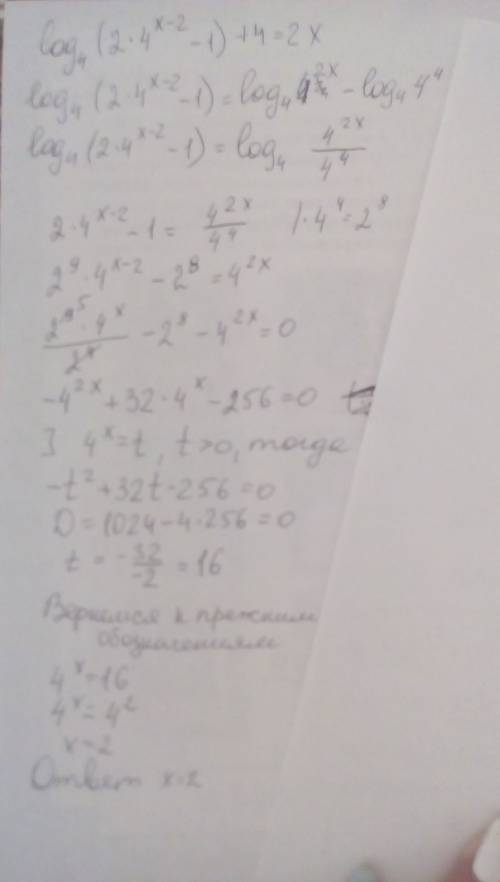 log₄(2·4ˣ⁻²-1)+4=2x
log₄(2·4ˣ⁻²-1)=log₄4²ˣ-log₄4⁴
log₄(2·4ˣ⁻²-1)=log₄ 4²ˣ/4⁴
2·4ˣ⁻²-1= 4²ˣ/4⁴ |·4⁴=2⁸
2⁹·4ˣ⁻²-2⁸=4²ˣ
2⁹ ⁵·4ˣ/2⁴ -2⁸-4²ˣ=0
-4²ˣ+32·4ˣ-256=0
] 4ˣ=t, t>0, тогда
-t²+32t-256=0
D=1024-4·256=0
t = -32/-2 =16
Вернемся к прежним
обозначениям
4ˣ=16
4ˣ=4²
x=2
Ответ x=2